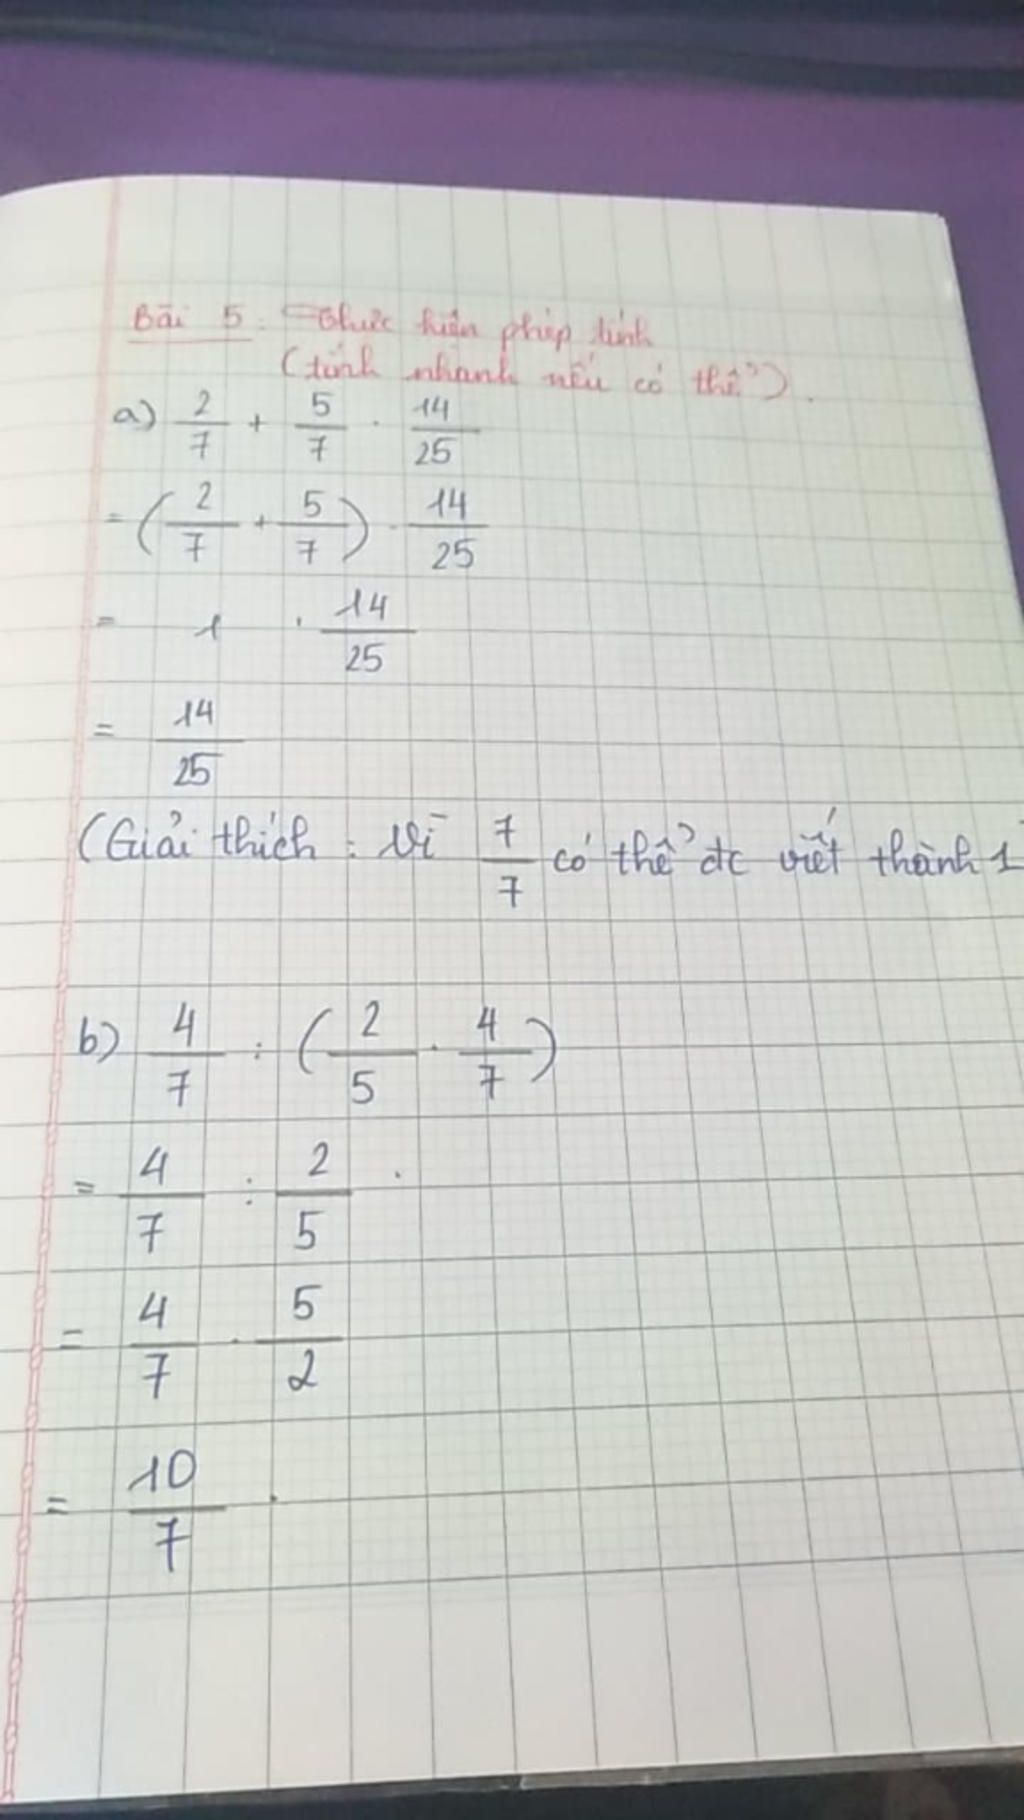 Bài 5: Thực hiện phép tính
(tính nhanh nếu có thể).
a) 2/7 + 5/7 . 14/25
= (2/7 + 5/7) . 14/25
= 1 . 14/25
= 14/25
(Giải thích : Vì 7/7 có thể đc viết thành 1
b) 4/7 : (2/5 . 4/7)
= 4/7 : 2/5 .
= 4/7 . 5/2
= 10/7 .